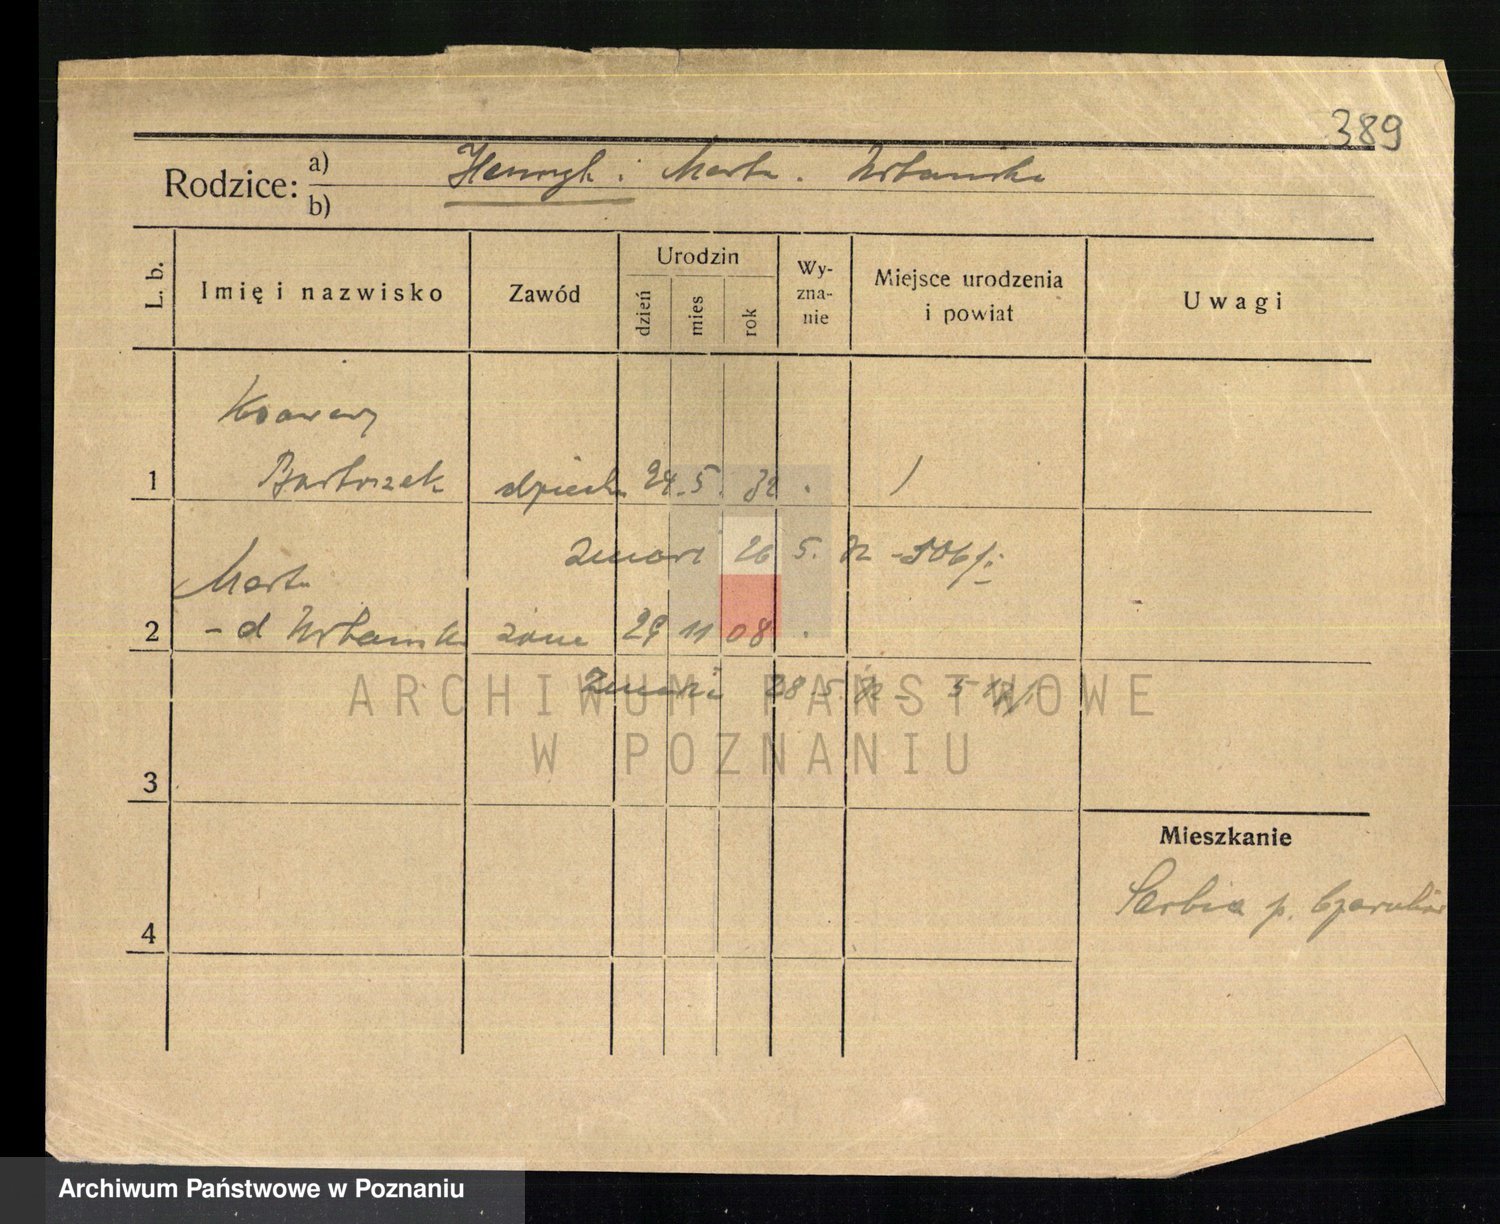 389
Rodzice: a) Henryk i Marta Urbańska
b)
L. b. Imię i nazwisko Zawód Urodzin dzień mies rok Wy-zna-nie Miejsce urodzenia i powiat Uwagi
Ksawery
1 Bartoszek dziecko 24. 5. 32 . /
zmarł 26 5. 32 - 506/
Marta
2 - d Urbańska żona 29 11 08 .
Zmarła 28. 5. 32 -
3
Mieszkanie
Sarbia p. Czarnków
4
ARCHIWUM PAŃSTWOWE
W POZNANIU
Archiwum Państwowe w Poznaniu